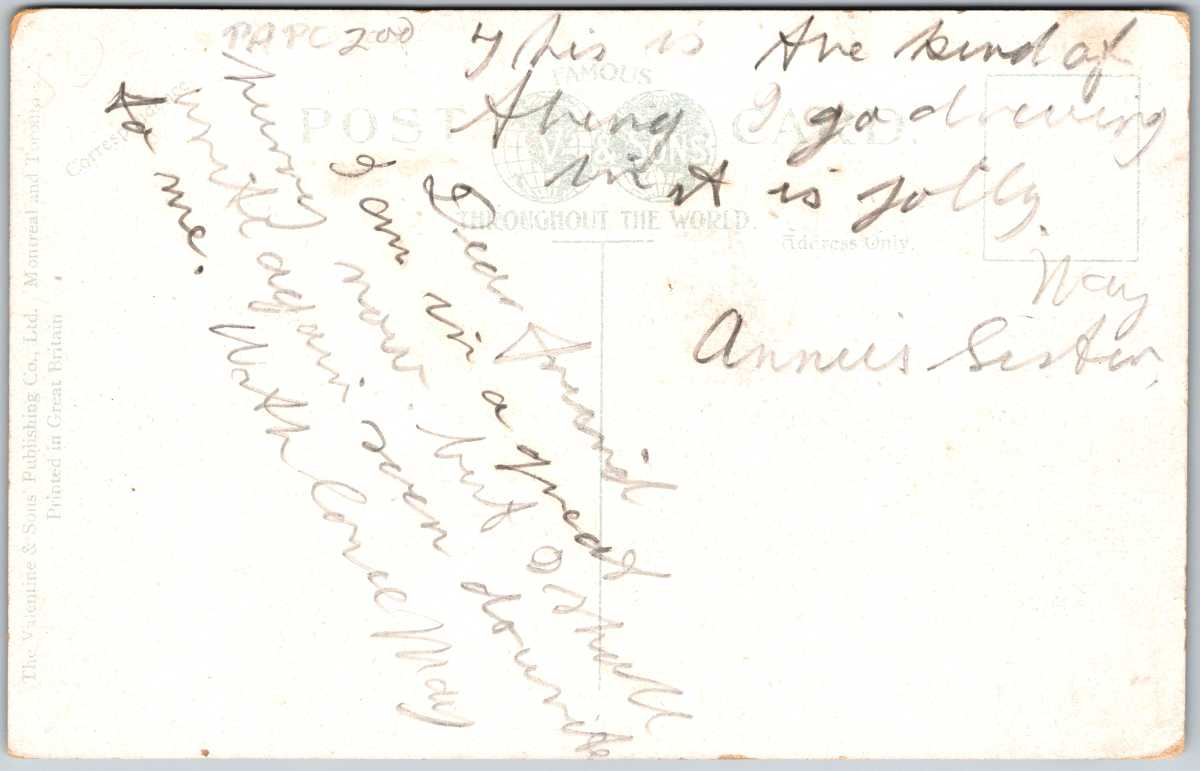 PAPC 200
This is the kind of
thing I go driving
in it is jolly.
May
Annie's Sister,
Dear Friend
I am in a great
hurry now but I shall
write again soon. dounit
to me.
With Love May
FAMOUS
POST CARD.
V & SONS
THROUGHOUT THE WORLD.
Correspondence
Address Only.
The Valentine & Sons' Publishing Co., Ltd. Montreal and Toronto
Printed in Great Britain